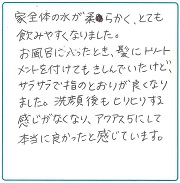 家全体の水が柔らかく、とても
飲みやすくなりました。
お風呂に入ったとき、髪にトリート
メントを付けてもきしんでいたけど、
サラサラで指のとおりが良くなり
ました。洗顔後もヒリヒリする
感じがなくなり、アクアスゴにして
本当に良かったと感じています。